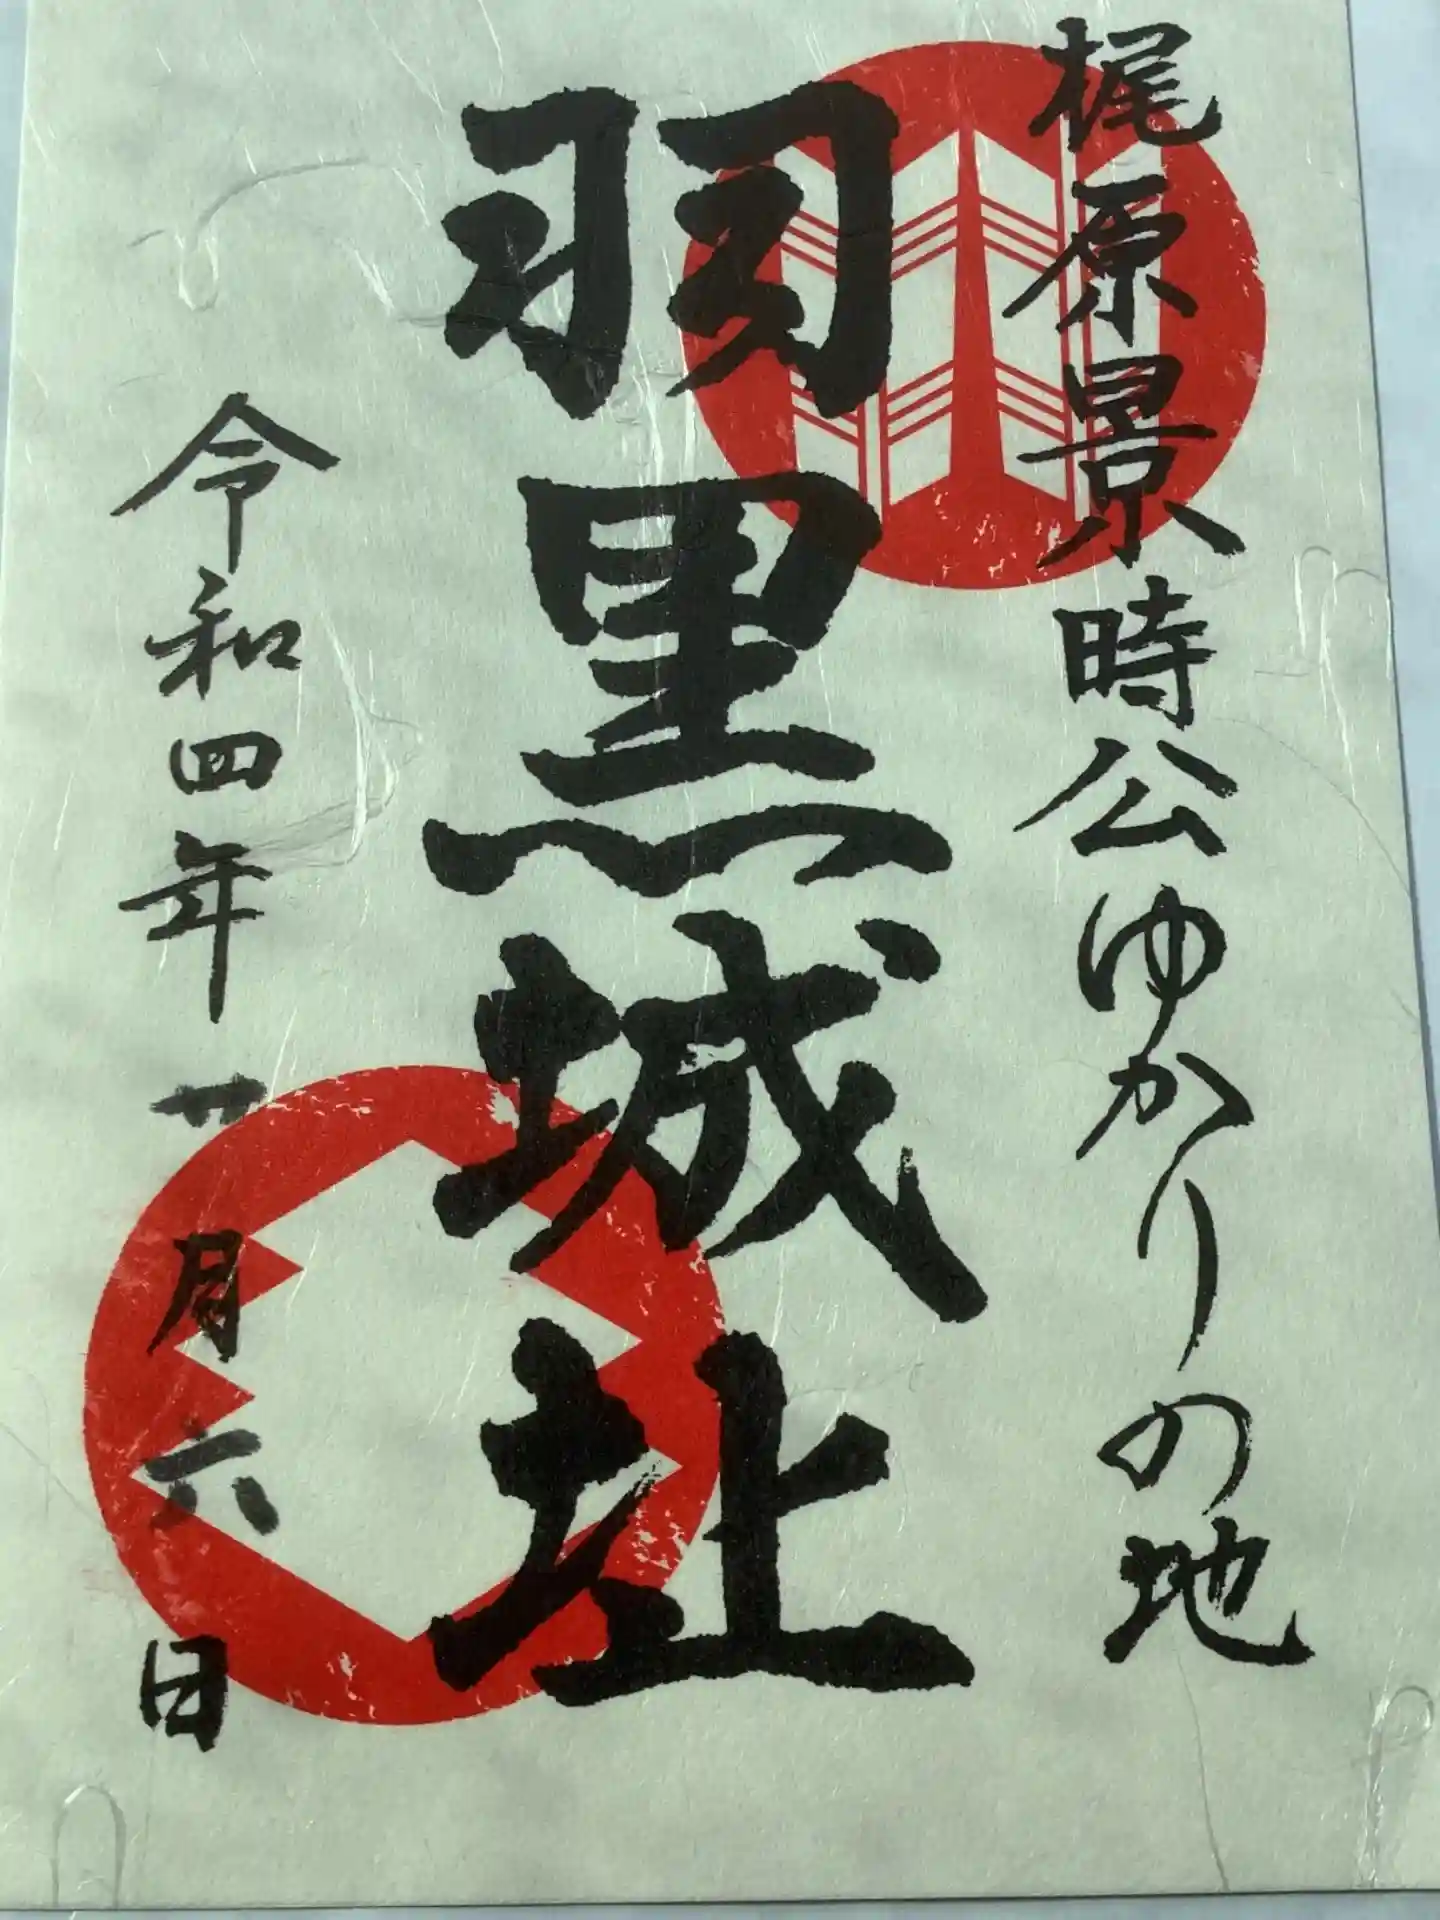 梶原景時公ゆかりの地
羽黒城址
令和四年十一月六日